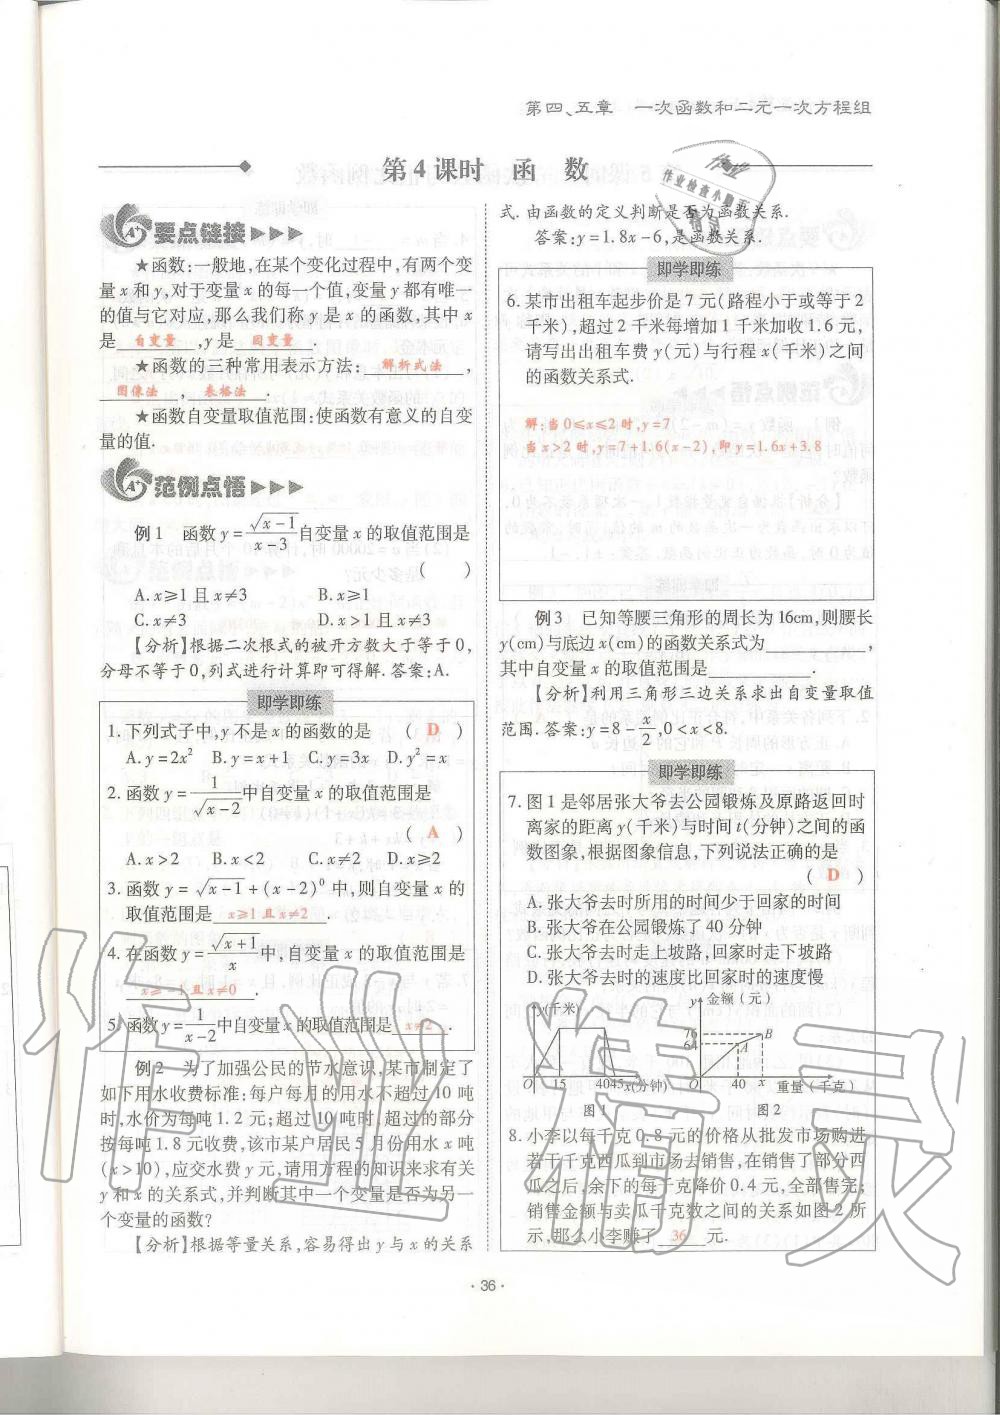 第四、五章 一次函数和二元一次方程组
第4课时 函 数
要点链接
★函数:一般地,在某个变化过程中,有两个变
量 x 和 y,对于变量 x 的每一个值,变量 y 都有唯一
的值与它对应,那么我们称 y 是 x 的函数,其中 x
是 自变量 ,y 是 因变量 .
★函数的三种常用表示方法: 解析式法 ,
图像法 , 表格法 .
★函数自变量取值范围:使函数有意义的自变
量的值.
范例点悟
例1 函数 y=√(x-1)/(x-3)自变量 x 的取值范围是
( )
A.x≥1 且 x≠3 B.x≥1
C.x≠3 D.x>1 且 x≠3
【分析】根据二次根式的被开方数大于等于0,
分母不等于0,列式进行计算即可得解.答案:A.
即学即练
1.下列式子中,y 不是 x 的函数的是 ( D )
A.y=2x² B.y=x+1 C.y=3x D.y²=x
2.函数 y=1/√(x-2)中自变量 x 的取值范围是
( A )
A.x>2 B.x<2 C.x≠2 D.x≥2
3.函数 y=√(x-1)+(x-2)⁰ 中,则自变量 x 的
取值范围是 x≥1且x≠2 .
4.在函数 y=√(x+1)/x中,自变量 x 的取值范围是
x≥-1且x≠0 .
5.函数 y=1/(x-2)中自变量 x 的取值范围是 x≠2 .
例2 为了加强公民的节水意识,某市制定了
如下用水收费标准:每户每月的用水不超过10吨
时,水价为每吨1.2元;超过10吨时,超过的部分
按每吨1.8元收费,该市某户居民5月份用水 x 吨
(x>10),应交水费 y 元,请用方程的知识来求有关
y 和 x 的关系式,并判断其中一个变量是否为另一
个变量的函数?
【分析】根据等量关系,容易得出 y 与 x 的关系
式.由函数的定义判断是否为函数关系.
答案:y=1.8x-6,是函数关系.
即学即练
6.某市出租车起步价是7元(路程小于或等于2
千米),超过2千米每增加1千米加收1.6元,
请写出出租车费 y(元)与行程 x(千米)之间
的函数关系式.
解:当0≤x≤2时,y=7
当x>2时,y=7+1.6(x-2),即y=1.6x+3.8
例3 已知等腰三角形的周长为16cm,则腰长
y(cm)与底边 x(cm)的函数关系式为 ,
其中自变量 x 的取值范围是 .
【分析】利用三角形三边关系求出自变量取值
范围.答案:y=8-x/2,0<x<8.
即学即练
7.图1是邻居张大爷去公园锻炼及原路返回时
离家的距离 y(千米)与时间 t(分钟)之间的函
数图象,根据图象信息,下列说法正确的是
( D )
A.张大爷去时所用的时间少于回家的时间
B.张大爷在公园锻炼了40分钟
C.张大爷去时走上坡路,回家时走下坡路
D.张大爷去时的速度比回家时的速度慢
y(千米)
O 15 40 45 x(分钟)
图1
y 金额(元)
76
64
A
B
O 40 x 重量(千克)
图2
8.小李以每千克0.8元的价格从批发市场购进
若干千克西瓜到市场去销售,在销售了部分西
瓜之后,余下的每千克降价0.4元,全部售完;
销售金额与卖瓜千克数之间的关系如图2所
示,那么小李赚了 36 元.
· 36 ·
作业精灵
作业
作业检查小帮手
精灵